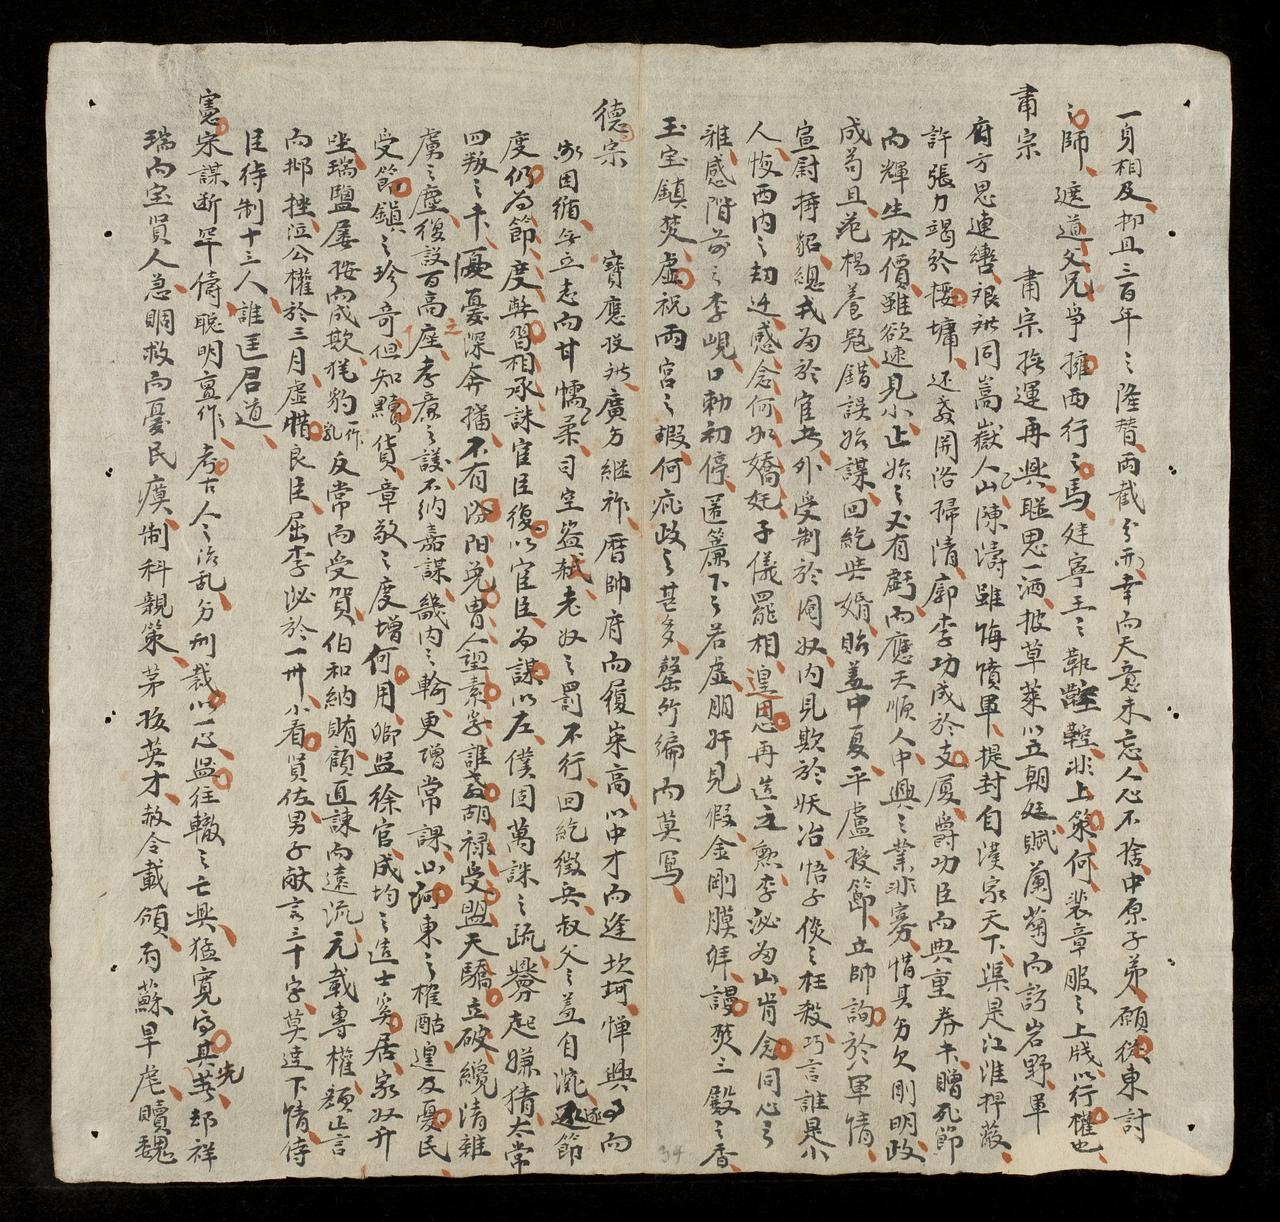 一身相及抑且三百年之隆替兩截分而幸而天意未忘人心不捨中原子弟願從東討
之師遮道父兄爭擁西行之馬建寧王之執鞚非上策何裴章服之上牋以行權也
肅宗 肅宗撫運再興聰思一洒披草萊以立朝廷賦蘭菊而訪岩野軍
府方思連轡艰歩同嵩嶽人山陳濤雖侮憤軍提封自漢家天下渠是江淮捍蔽
許張力竭於摟墉还敎開洛掃清郭李功成於支厦爵功臣而典重券夫贈死節
而輝生松價雖欲速見小止始之又有虧而應天順人中興之業非寡惜其剪欠剛明政
成苟且范楊養冠錯誤始謀回紇生婚貽羞中夏平盧殺節立帥詢於軍情
宣尉捧詔總戎為於宦者外受制於閹奴內見欺於妖冶悟子俊之枉殺巧言誰是小
人悔西內之刧迁感念何如嬌妃子儀罷相遑恩再造之勲李泌為山肯念同心之
雅感階前之李峴口勅初停匿簾下之若虛朋奸見假金剛膜拜謾熨三殿之香
玉宝鎮焚虛祝兩宮之嘏何疵政之甚多罄竹編而莫寫
德宗 寶應投歩廣方繼祚曆帥府而履崇高以中才而逢坎坷憚興事而
衆因循無立志而甘懦柔司空盜弒老奴之罰不行回紇徵兵叔父之羞自滝逐節
度仍為節度弊習相承誅宦臣復以宦臣為謀以左僕固萬誅之疏釁起嫌猜太常
四叛之卡憂憂深奔播不有汾阳免冑人望素孚誰敎胡禄受盟天驕立破纔清雜
虜之塵復設百高座之孝廉之議不納嘉謀畿內之輸更增常課以河東之榷酤遑及憂民
受節鎮之珍奇但知黷貨章敬之度增何用卿监徐官成均之造士奚居家奴升
坐瑞鹽屡按而咸欺犹豹一作乳反常而受賀伯和納賄顧直諫而遠流元載專權額正言
而挪挫泣公權於三月虛惜良臣屈李泌於一卅小看員佐男子献言三十字莫達下情侍
臣待制十三人誰匡君道
憲宗謀断罕儔聡明亶作考古人之治乱分刑裁以一心监往轍之亡興猛寬寫其先却祥
瑞而宝賢人急賙救而憂民瘼制科親策茅拔英才赦令載頒雨蘇旱虐贖魏